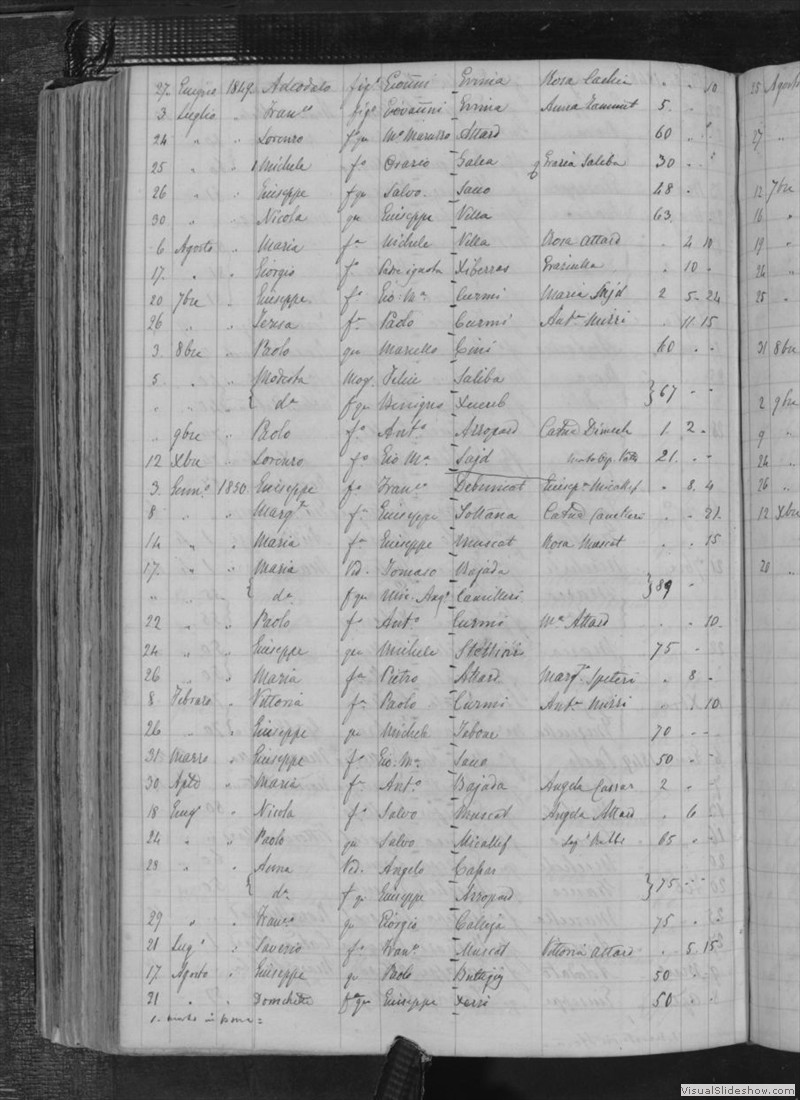 27 Giugno 1849 Adeodato figo Giovni Ermia Rosa " " 10
3 Luglio " Franco figo Giovanni Ermia Anna Zammit 5 "
24 " " Lorenzo fo qu Attard 60 "
25 " " 1 Michele fo Orazio Galea q Grazia Saliba 30 "
26 " " Giuseppe f qu Salvo 48 "
30 " " Nicola qu Giuseppe Villa 63
6 Agosto " Maria fa Michele Villa Rosa Attard " 4 10
17 " " Giorgio fo Xiberras " 10 "
20 7bre " Giuseppe fo Gio: Ma Curmi Maria Sajd 2 5 24
26 " " Teresa fa Paolo Curmi Anta Mizzi " 11 15
3 8bre " Paolo qu Marcello Cini 60 " "
5 " " Modesta Mog. Felice Saliba
" " " { da f qu Benigno Xuereb } 67 " "
" 9bre " Paolo fo Anto Arropard Catna Dimech 1 2 "
12 Xbre " Lorenzo fo Gio Ma Sajd 21 " "
3 Genno 1850 Giuseppe fo Franco Debuncat Giuseppa Micallef " 8 4
8 " " Margta fa Giuseppe Catna Camilleri " " 21
14 " " Maria fa Giuseppe Muscat Rosa Muscat " " 15
17 " " Maria Ved. Tomaso Bajada
" " " { da f qu Mic. Ango Camilleri } 89 "
22 " " Paolo fo Anto Curmi Ma Attard " " 10
24 " " Giuseppe qu Michele 75 "
26 " " Maria fa Pietro Attard Margta Spiteri " 8 "
8 Febraro " Vittoria fa Paolo Curmi Anta Mizzi " " 10
26 " " Giuseppe qu Michele Tabone 70 " "
31 Marzo " Giuseppe fo Gio: Ma 50 " "
30 " Maria fa Anto Bajada Angela Cassar 2 "
18 Giugo " Nicola fo Salvo Muscat Angela Attard " 6 "
24 " " Paolo qu Salvo Micallef 65 " "
28 " " Anna Ved. Angelo
{ da f qu Giuseppe Arropard } 75 " "
29 " " Franco qu Giorgio Calleja 75 " "
21 Lugo " Saverio fo Franco Muscat Vittoria Attard " 5 15
17 Agosto " Giuseppe qu Paolo Buttigieg 50 " "
21 " " fa qu Giuseppe Xerri 50 " "
1. morto in
25 Agosto
27 "
12 7bre
16 "
19 "
26 "
25 "
31 8bre
2 9bre
9 "
24 "
26 "
12 Xbre
20 "
VisualSlideshow.com